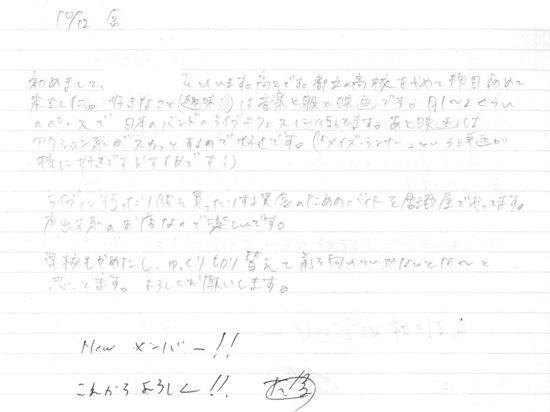 10/12 金
初めまして、 といいます。高2です。都立の高校をやめて昨日初めて
来ました。好きなこと(趣味?)は音楽と服と映画です。月1〜2くらい
のペースで日本のバンドのライブやフェスに行ってます。あと映画は
アクション系がスカッとするので好きです。(「メイズ・ランナー」という映画が
特に好きです!)
ライブに行ったり服を買ったりする資金のためのバイトを居酒屋でやってます。
声出す系のお店なので楽しいです。
学校もやめたし、ゆっくり切り替えて前を向いていかないとな〜と
思ってます。よろしくお願いします。
New メンバー!!
これからよろしく!!